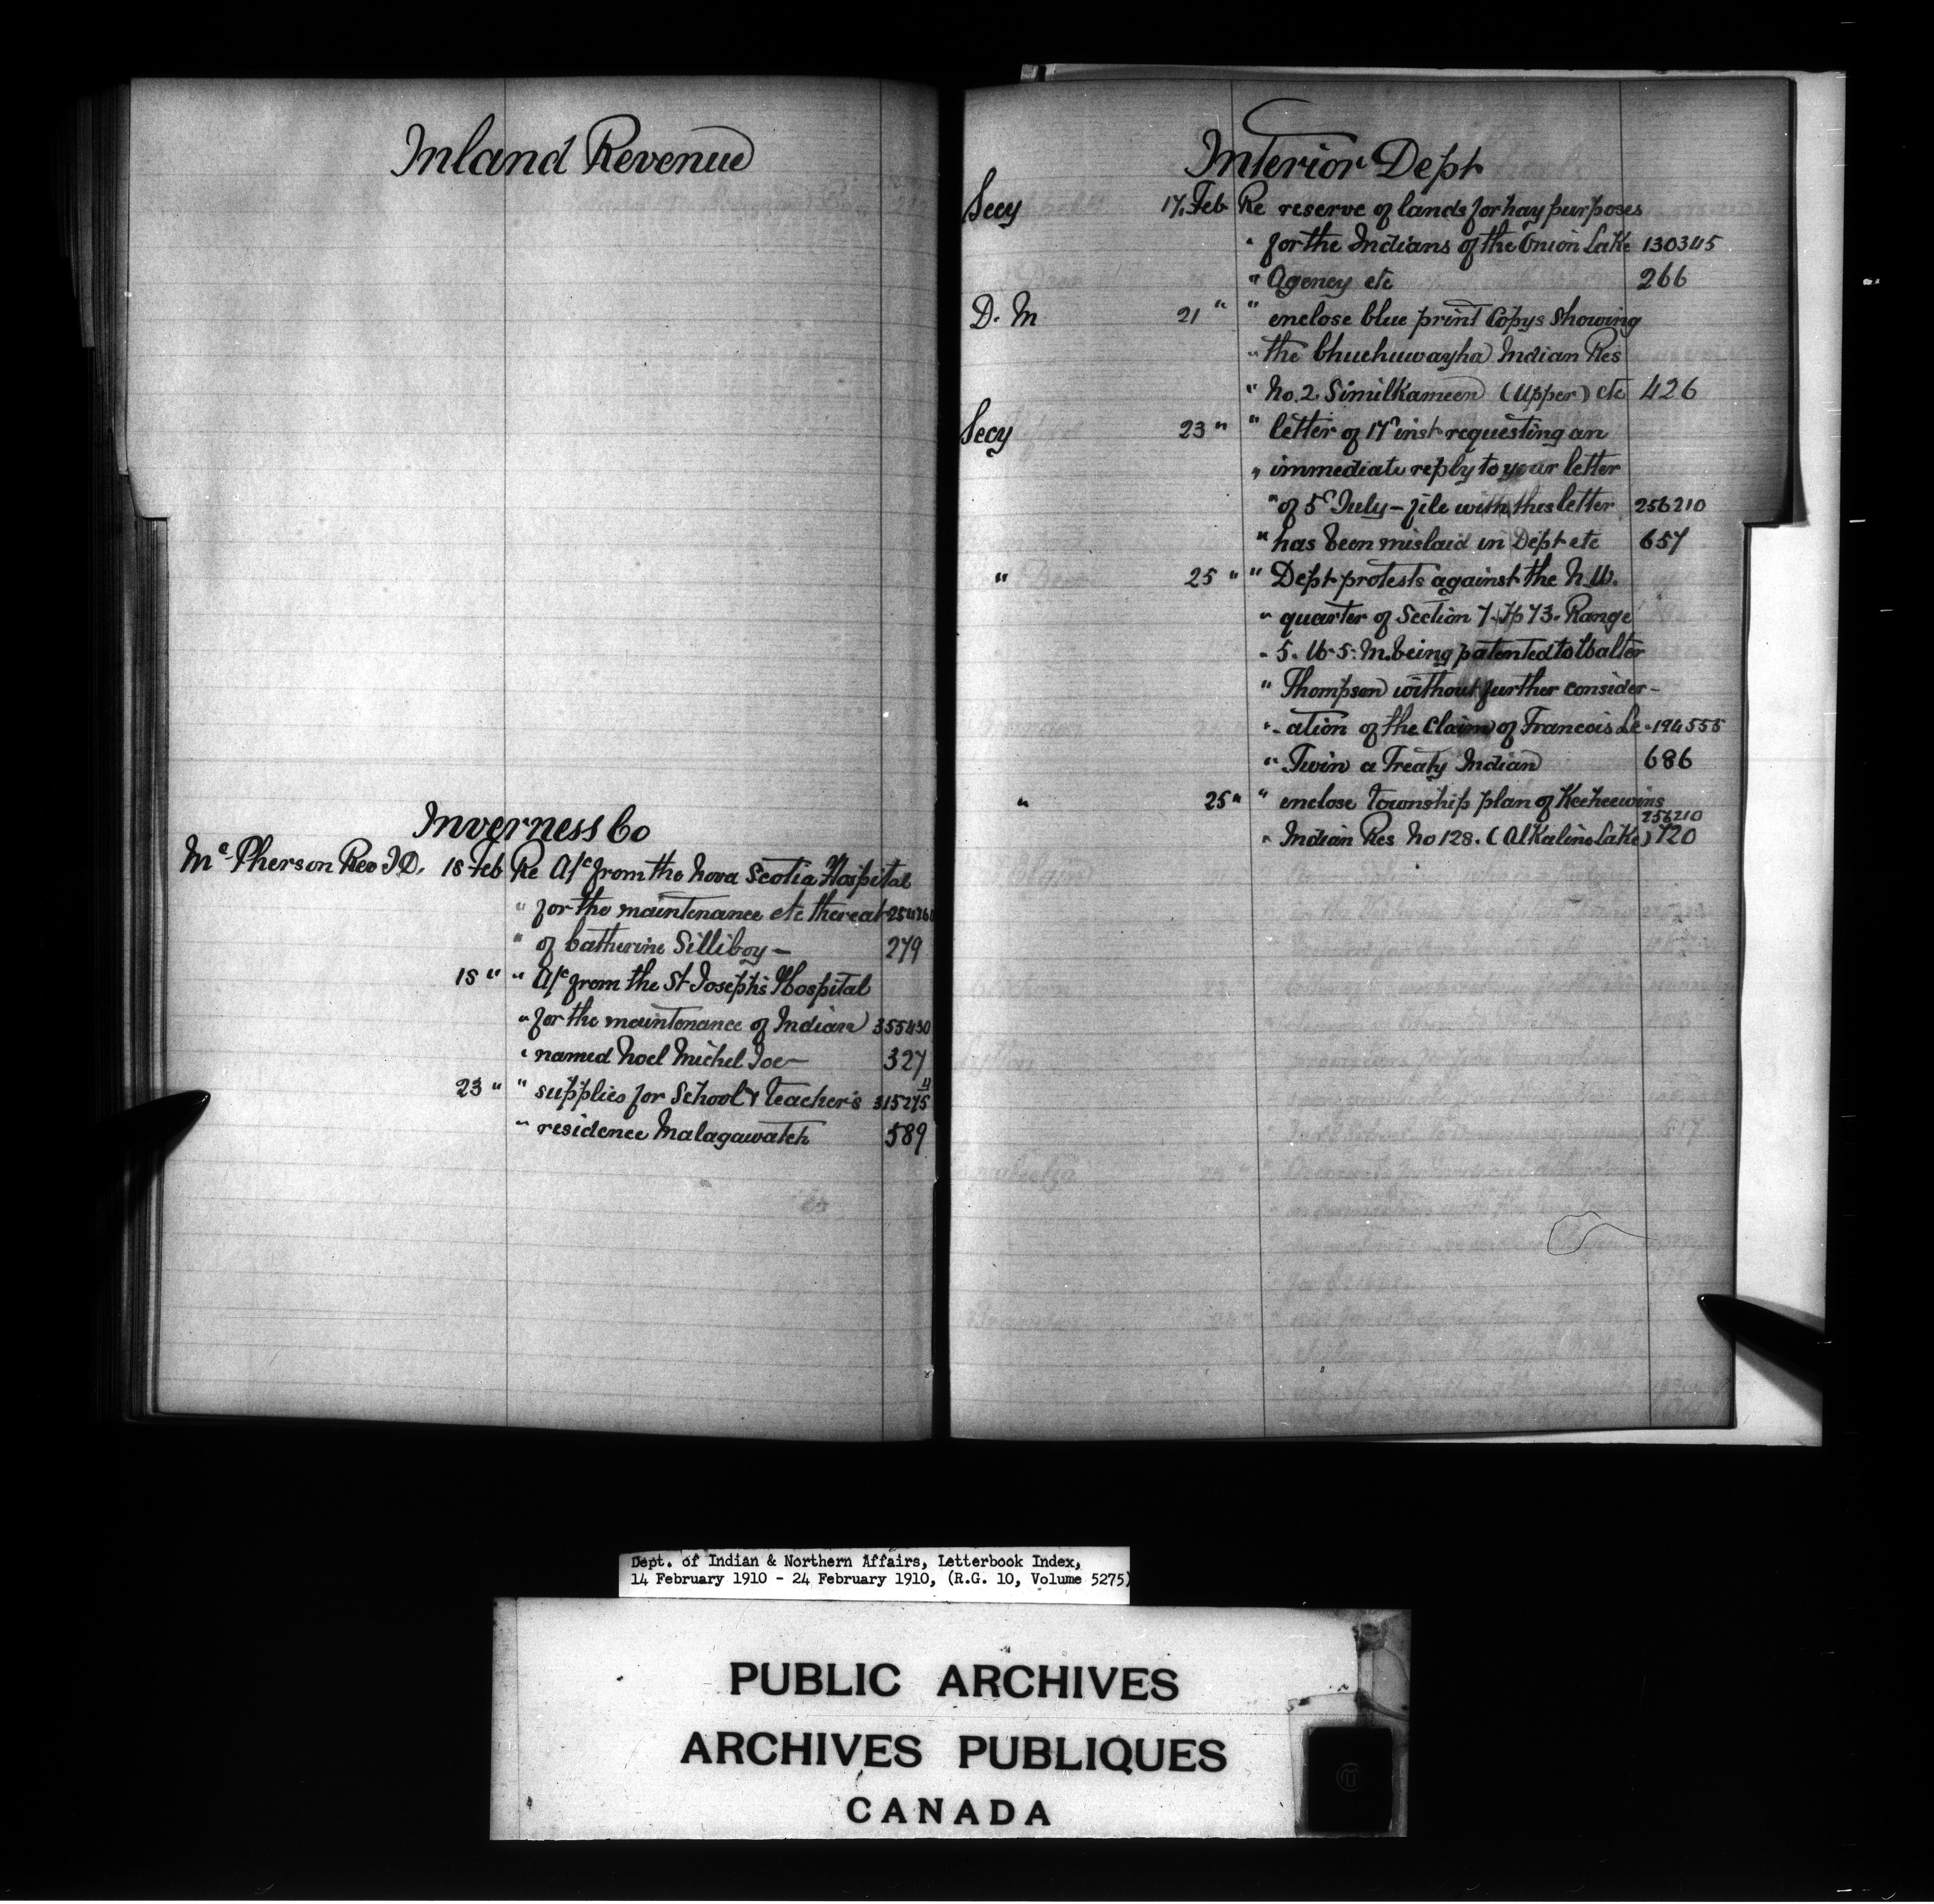 Inland Revenue
Inverness Co
Mc Pherson Rev J.D. 18 Feb Re A/c from the Nova Scotia Hospital
" for the maintenance etc thereat
" of Catherine Silliboy — 279
18 " " A/c from the St Joseph's Hospital
" for the maintenance of Indian 355430
" named Noel Michel Joe — 327
23 " " supplies for School & teacher's 315275
" residence Malagawatch 589
Interior Dept
Secy 17. Feb Re reserve of lands for hay purposes
" for the Indians of the Onion Lake 130345
" Agency etc 266
D. M 21 " " enclose blue print Copys showing
" the Chuchuwayha Indian Res
" No. 2. Similkameen (Upper) etc 426
Secy 23 " " letter of 17 inst requesting an
" immediate reply to your letter
" of 5 July — file with this letter 256210
" has been mislaid in Dept etc 657
" 25 " " Dept protests against the N.W.
" quarter of Section 7. Tp 73. Range
" 5. W. 5. M. being patented to Walter
" Thompson without further consider-
" ation of the Claim of Francois Le - 194555
" Twin a Treaty Indian 686
" 25 " " enclose township plan of Keeheewins
256210
" Indian Res No 128. (Alkaline Lake) 720
Dept. of Indian & Northern Affairs, Letterbook Index,
14 February 1910 - 24 February 1910, (R.G. 10, Volume 5275)
PUBLIC ARCHIVES
ARCHIVES PUBLIQUES
CANADA